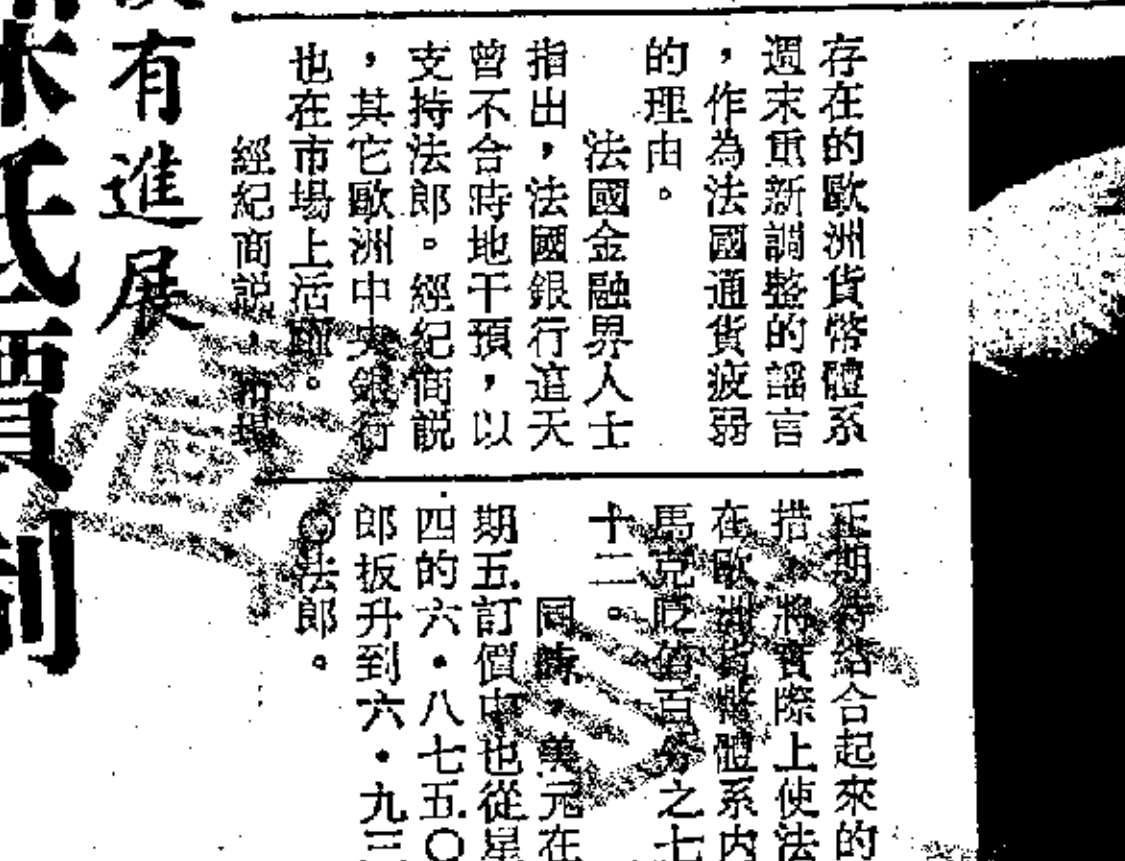 有進展
存在的歐洲貨幣體系
週末重新調整的謠言
，作為法國通貨疲弱
的理由。
法國金融界人士
指出，法國銀行這天
曾不合時地干預，以
支持法郎。經紀商説
，其它歐洲中央銀行
也在市場上活躍。
經紀商説，市場
正期待結合起來的
措，將實際上使法
在歐洲貨幣體系内
馬克貶值百分之七
十二。
同時，美元在
期五訂價中也從星
四的六・八七五〇
郎扳升到六・九三
〇法郎。